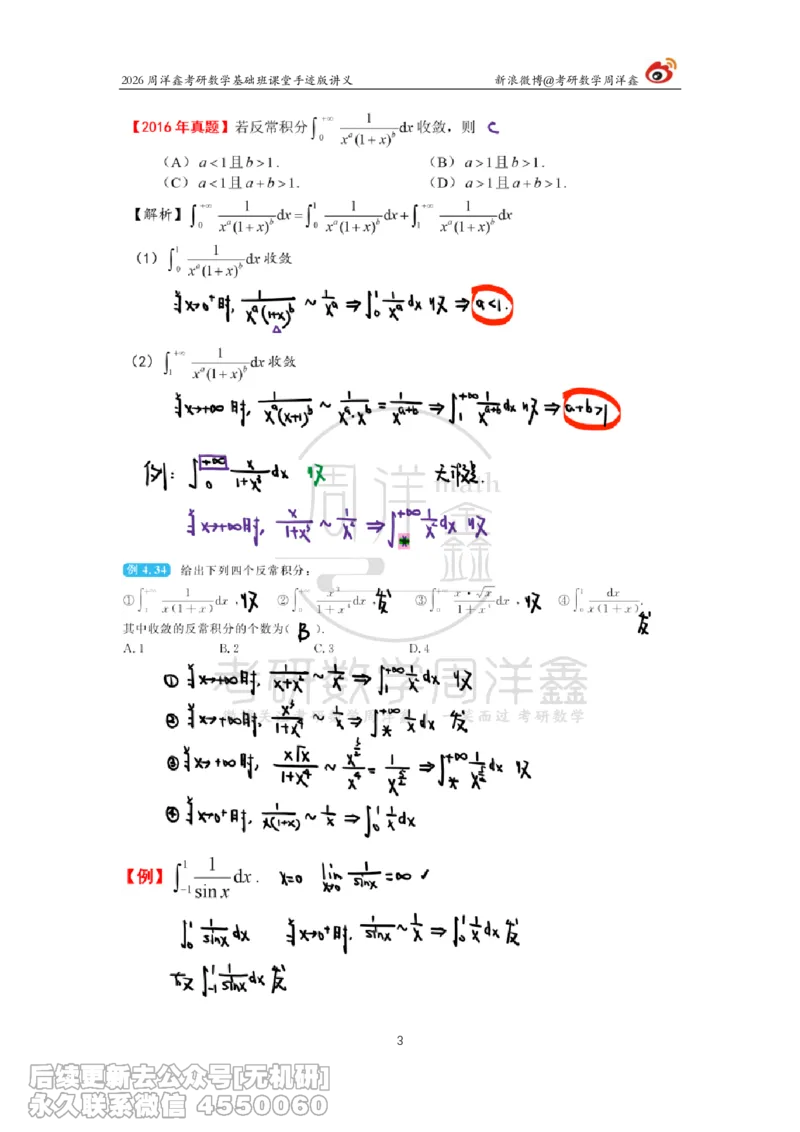 2026周洋鑫考研数学基础班课堂手迹版讲义 新浪微博@考研数学周洋鑫
【2016年真题】若反常积分∫₀^{+∞} 1/(x^a(1+x)^b) dx 收敛，则 C
（A）a<1且b>1. （B）a>1且b>1.
（C）a<1且a+b>1. （D）a>1且a+b>1.
【解析】∫₀^{+∞} 1/(x^a(1+x)^b) dx=∫₀^1 1/(x^a(1+x)^b) dx+∫₁^{+∞} 1/(x^a(1+x)^b) dx
（1）∫₀^1 1/(x^a(1+x)^b) dx 收敛
当x→0⁺时, 1/(x^a(1+x)^b) ~ 1/x^a ⇒ ∫₀^1 1/x^a dx 收 ⇒ a<1.
（2）∫₁^{+∞} 1/(x^a(1+x)^b) dx 收敛
当x→+∞时, 1/(x^a(x+1)^b) ~ 1/(x^a·x^b) = 1/x^{a+b} ⇒ ∫₁^{+∞} 1/x^{a+b} dx 收 ⇒ a+b>1
例: ∫₀^{+∞} x/(1+x³) dx 收 无瑕点.
当x→+∞时, x/(1+x³) ~ 1/x² ⇒ ∫^{+∞} 1/x² dx 收
例 4.34 给出下列四个反常积分：
①∫₁^{+∞} 1/(x(1+x)) dx, 收 ②∫₀^{+∞} x³/(1+x⁴) dx, 发 ③∫₀^{+∞} x·√x/(1+x⁴) dx, 收 ④∫₀^1 dx/(x(1+x)), 发
其中收敛的反常积分的个数为( B ).
A.1 B.2 C.3 D.4
① 当x→+∞时, 1/(x+x²) ~ 1/x² ⇒ ∫₁^{+∞} 1/x² dx 收
② 当x→+∞时, x³/(1+x⁴) ~ 1/x ⇒ ∫_*^{+∞} 1/x dx 发
③ 当x→+∞时, x√x/(1+x⁴) ~ x^{3/2}/x⁴ = 1/x^{5/2} ⇒ ∫_*^{+∞} 1/x^{5/2} dx 收
④ 当x→0⁺时, 1/(x(1+x)) ~ 1/x ⇒ ∫₀^1 1/x dx
【例】∫₋₁^1 1/sin x dx. x=0 lim_{x→0} 1/sinx =∞ ✓
∫₀^1 1/sinx dx 当x→0⁺时, 1/sinx ~ 1/x ⇒ ∫₀^1 1/x dx 发
故 ∫₋₁^1 1/sinx dx 发
周洋鑫
math
考研数学周洋鑫
3
后续更新去公众号[无机研]
永久联系微信 4550060